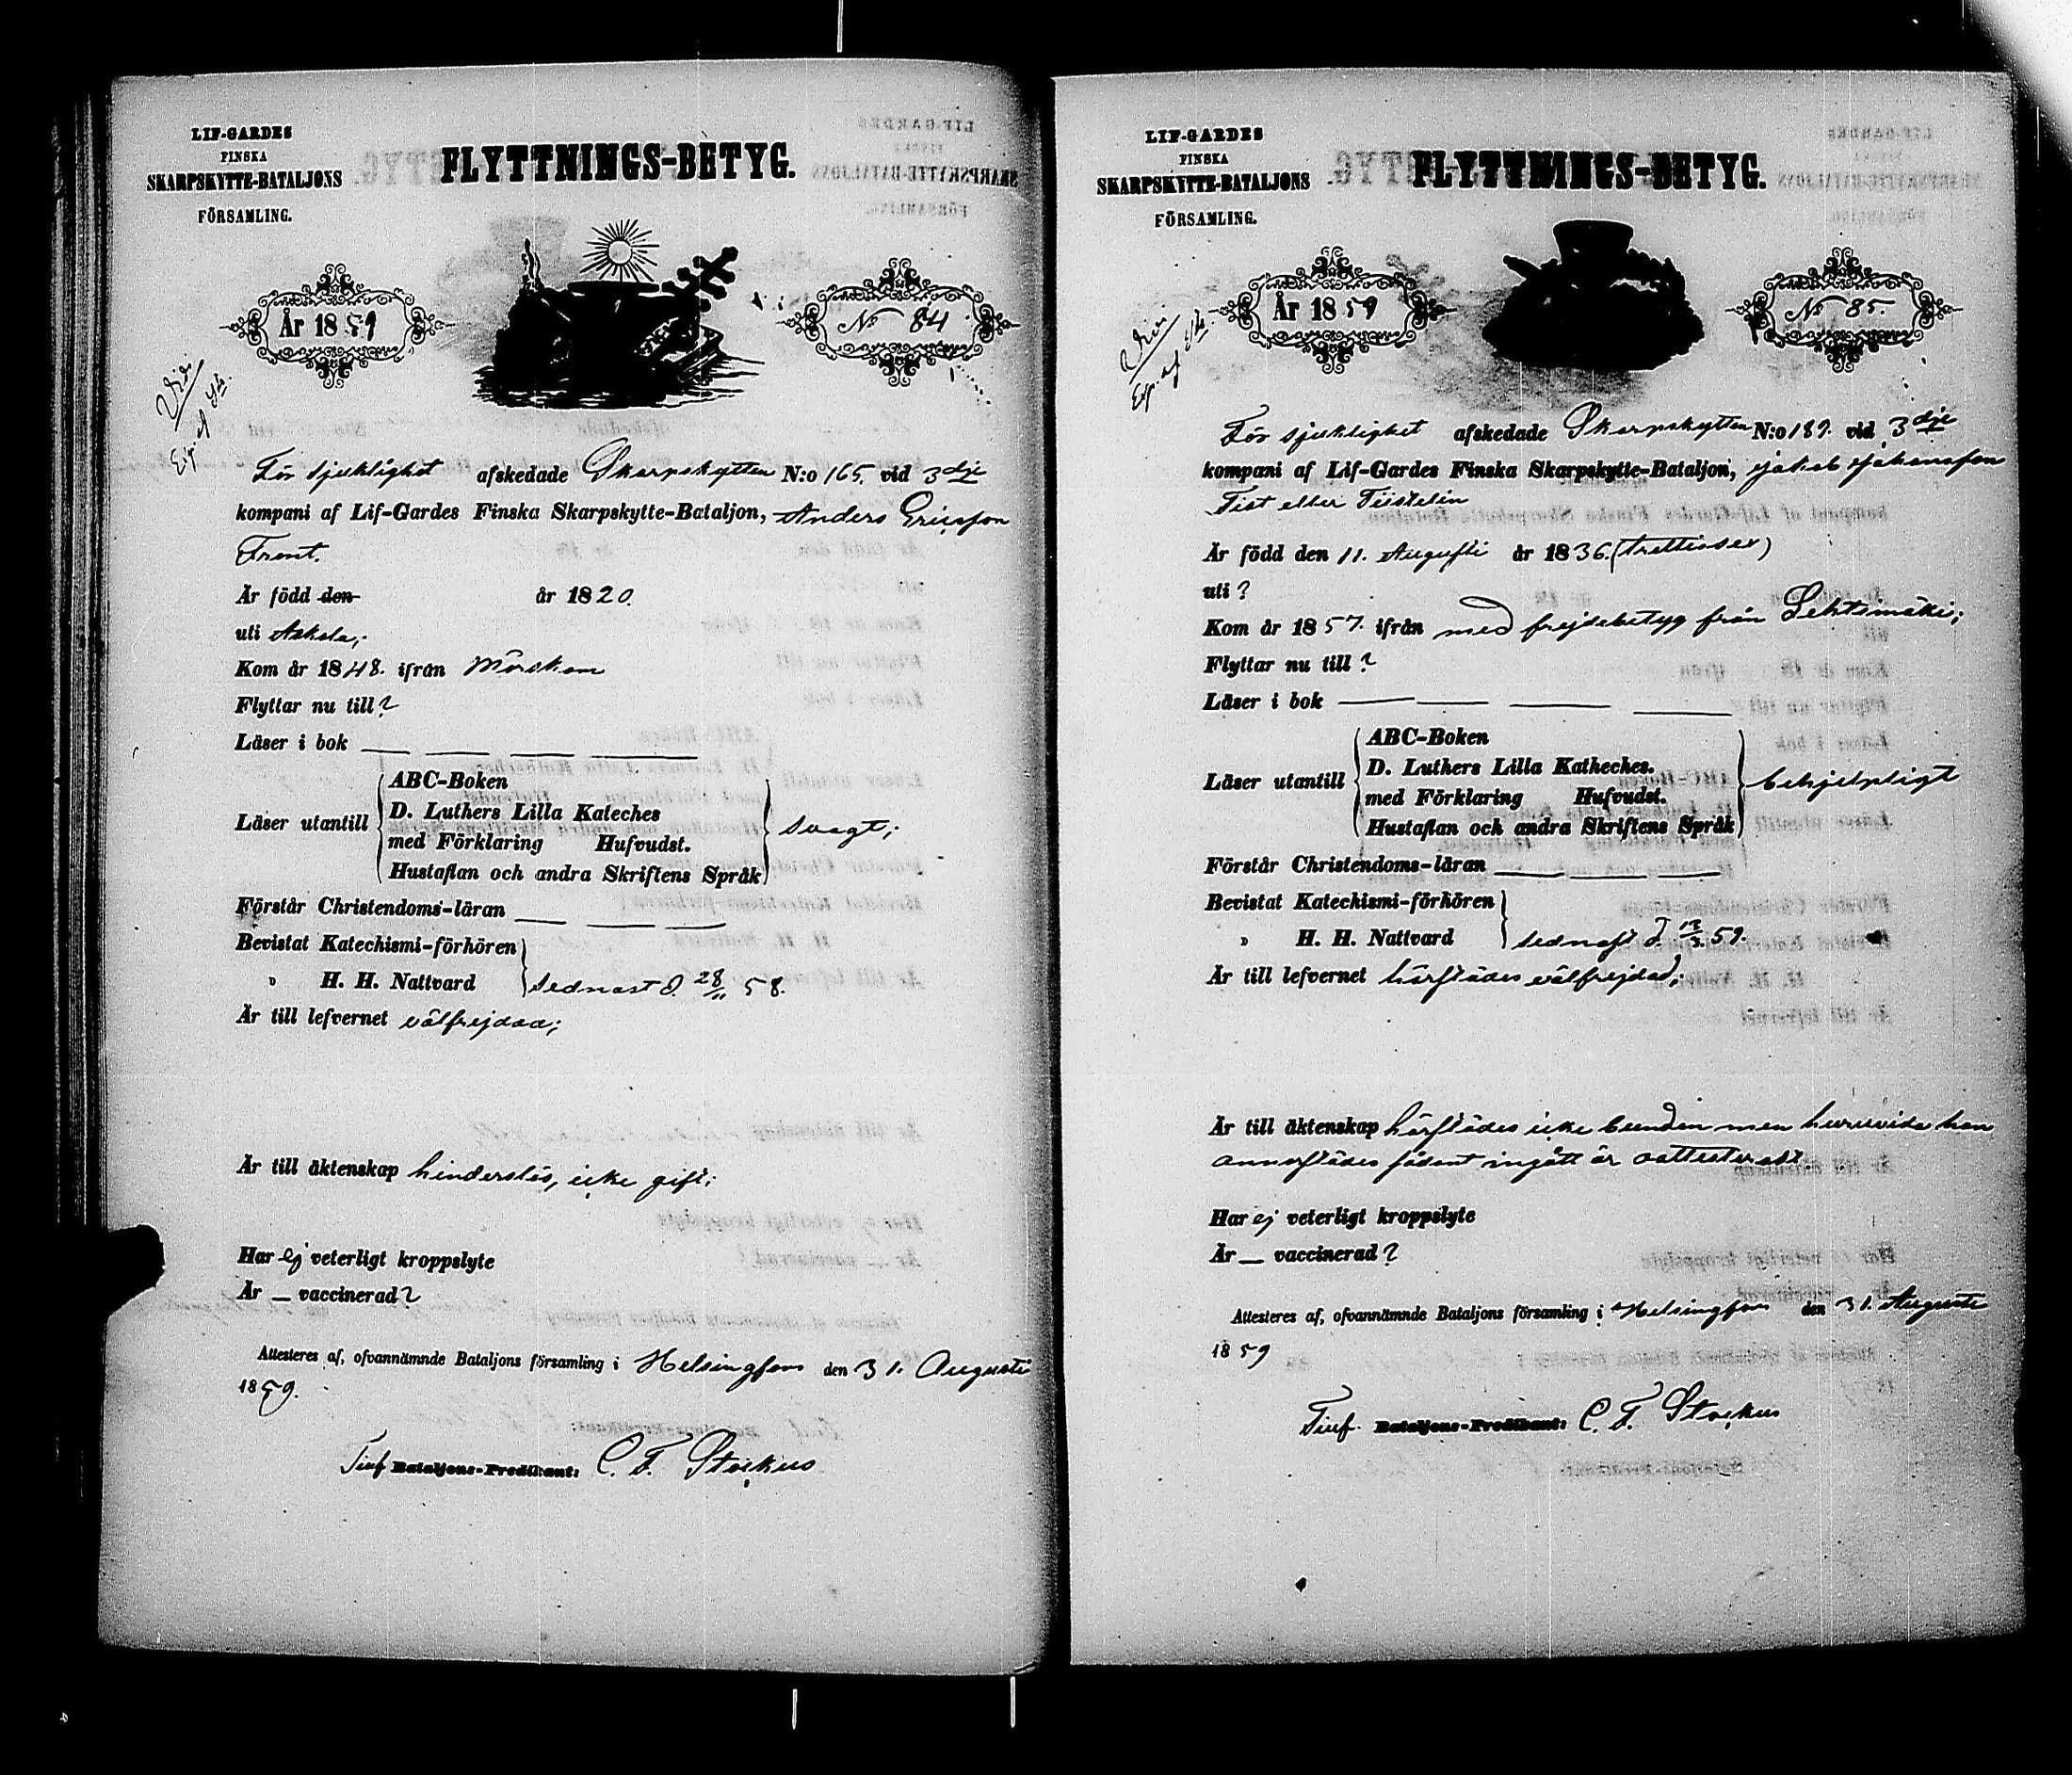 LIF-GARDES
FINSKA
SKARPSKYTTE-BATALJONS
FÖRSAMLING.
FLYTTNINGS-BETYG.
År 1859
No 84
För sjuklighet afskedade Skarpskytten N:o 165. vid 3dje
kompani af Lif-Gardes Finska Skarpskytte-Bataljon, Anders Ericsson
Front.
Är född den år 1820.
uti Askola;
Kom år 1848. ifrån Mörskom
Flyttar nu till?
Läser i bok
ABC-Boken
D. Luthers Lilla Kateches
Läser utantill svagt;
med Förklaring Hufvudst.
Hustaflan och andra Skriftens Språk
Förstår Christendoms-läran
Bevistat Katechismi-förhören
" H. H. Nattvard sednast d. 28/11 58.
Är till lefvernet välfrejdad;
Är till äktenskap hinderslös, icke gift;
Har ej veterligt kroppslyte
Är — vaccinerad?
Attesteres af, ofvannämnde Bataljons församling i Helsingfors den 31. Augusti
1859.
Tjenf. Bataljons-Predikant: C. F. Stockus
LIF-GARDES
FINSKA
SKARPSKYTTE-BATALJONS
FÖRSAMLING.
FLYTTNINGS-BETYG.
År 1859
No 85.
För sjuklighet afskedade Skarpskytten N:o 189. vid 3dje
kompani af Lif-Gardes Finska Skarpskytte-Bataljon, Jakob Johansson
Tist eller Tiistelin
Är född den 11. Augusti år 1836. (trettiosex)
uti?
Kom år 1857. ifrån med frejdebetyg från Lehtimäki;
Flyttar nu till?
Läser i bok
ABC-Boken
D. Luthers Lilla Katheches.
Läser utantill behjelpligt
med Förklaring Hufvudst.
Hustaflan och andra Skriftens Språk
Förstår Christendoms-läran
Bevistat Katechismi-förhören
" H. H. Nattvard sednast d. 59.
Är till lefvernet härstädes välfrejdad;
Är till äktenskap härstädes icke bunden men huruvida han
annorstädes sådant ingått är oattesteradt
Har ej veterligt kroppslyte
Är — vaccinerad?
Attesteres af, ofvannämnde Bataljons församling i Helsingfors den 31. Augusti
1859
Tjenf. Bataljons-Predikant: C. F. Stockus